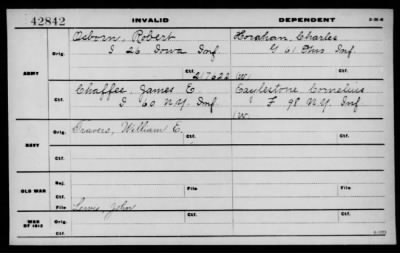 42842 INVALID DEPENDENT
Osborn, Robert Horahan, Charles
Orig. I 26 Iowa Inf. G 61 Ills Inf.
ARMY
Ctf. 217622 W.
Chaffee, James E. Caylestone Cornelius
Ctf. I 60 N.Y. Inf F 98 N.Y. Inf
W.
Travers, William E.
Orig. Ctf.
NAVY
Ctf.
Rej.
OLD WAR File File
Ctf.
File Lewis, John
WAR OF 1812 Orig. Ctf.
Ctf.